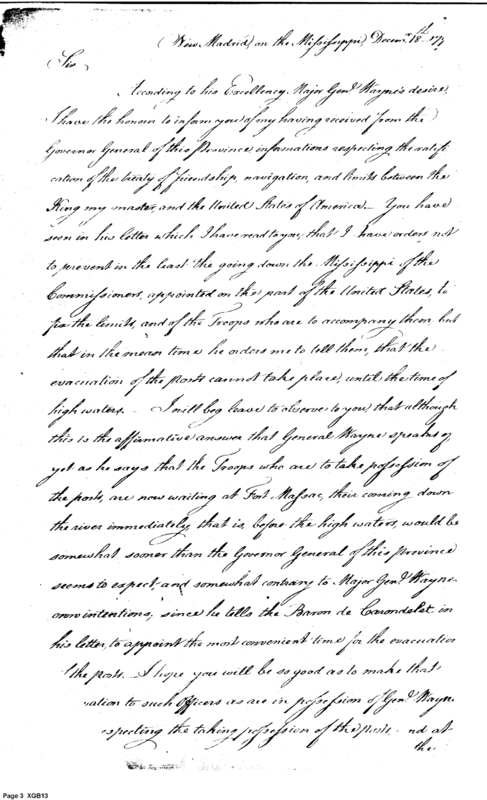 New Madrid, on the Mississippi, Decem.r 18.th 179
Sir
According to his Excellency Major Gen.l Wayne's desire,
I have the honour to inform you of my having received from the
Governor General of this Province informations respecting the ratifi
cation of the treaty of friendship, navigation, and limits between the
King my master, and the United States of America. You have
seen in his letter which I have read to you, that I have orders not
to prevent in the least the going down the Missisippi of the
Commissioners, appointed on the part of the United States, to
fix the limits, and of the Troops who are to accompany them, but
that in the mean time he orders me to tell them, that the
evacuation of the posts cannot take place, until the time of
high waters. I will beg leave to observe to you, that although
this is the affirmative answer that General Wayne speaks of,
yet as he says that the Troops who are to take possession of
the posts, are now waiting at Fort Massac, their coming down
the river immediately, that is, before the high waters, would be
somewhat sooner than the Governor General of this province
seems to expect, and somewhat contrary to Major Gen.l Wayne
own intentions; since he tells the Baron de Carondelet in
his letter, to appoint the most convenient time for the evacuation
the posts. I hope you will be so good as to make that
vation to such Officers as are in possession of Gen.l Wayne
specting the taking possession of the posts. nd at
the
Page 3 XGB13